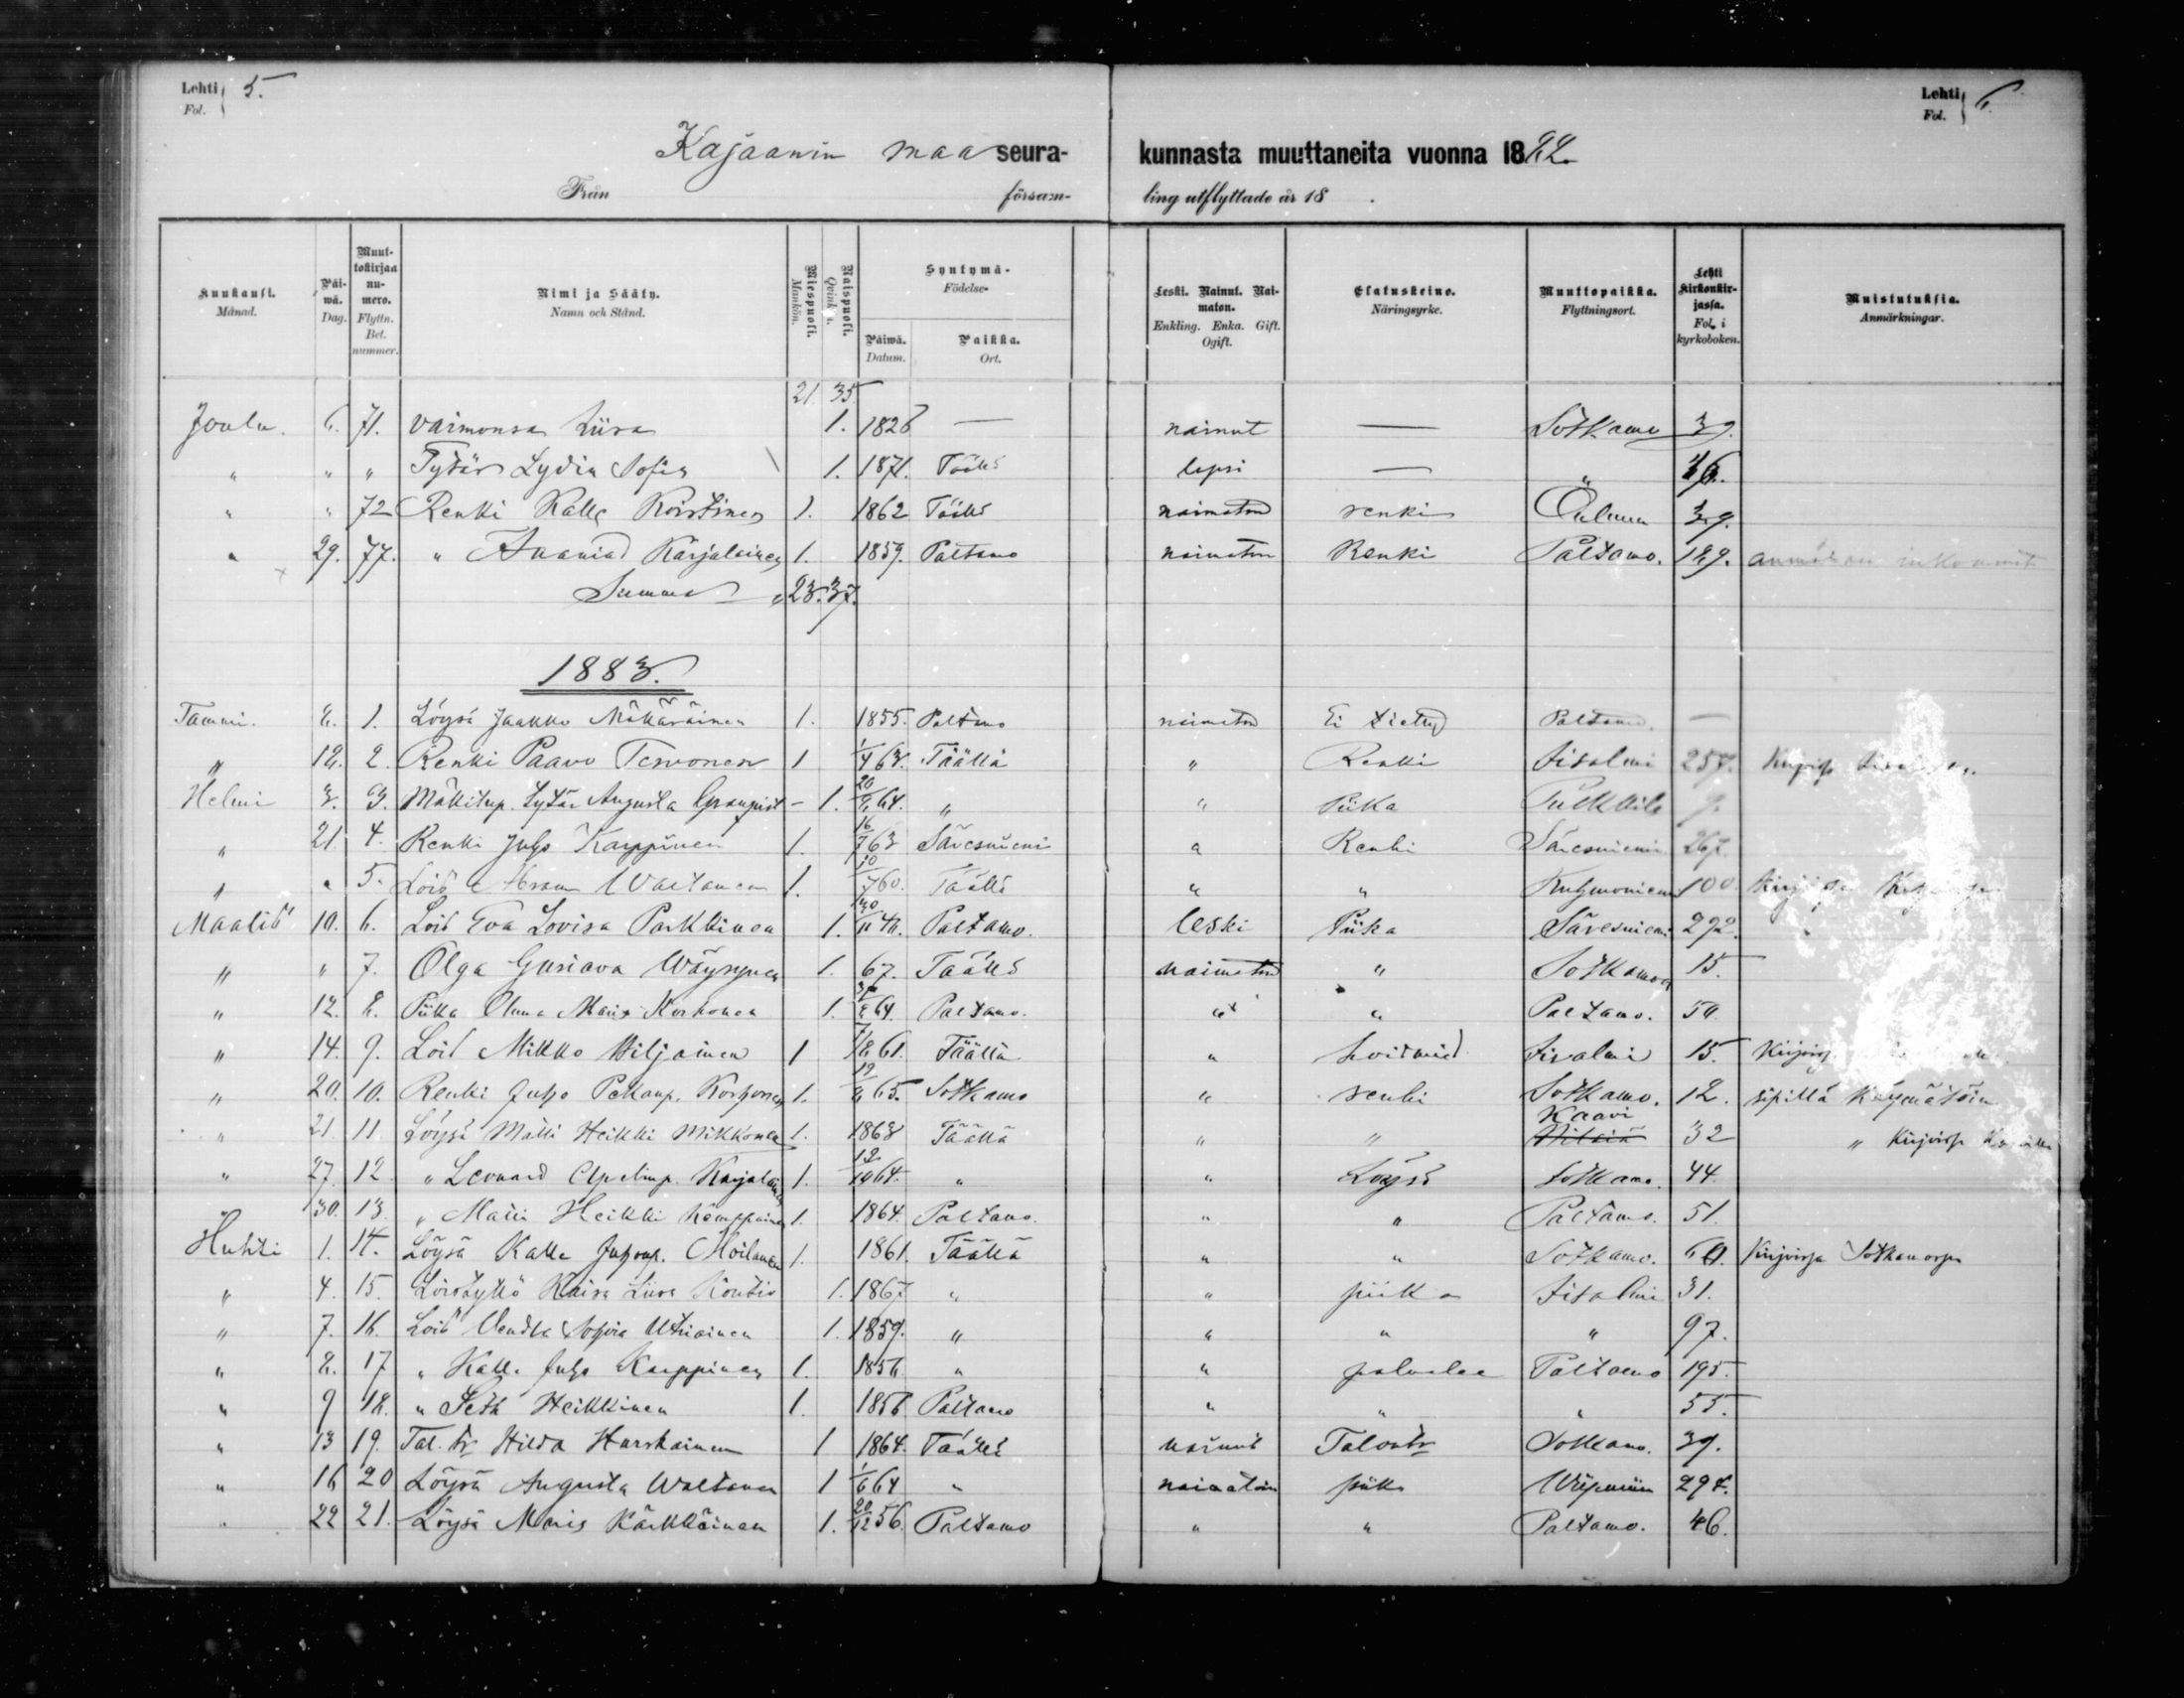 Lehti 5.
Fol.
Lehti 6.
Fol.
Kajaanin maa seura- kunnasta muuttaneita vuonna 1882.
Från församling utflyttade år 18 .
Kuukausi. Månad.
Päiwä. Dag.
Muuttokirjaa numero. Flyttn. Bet. nummer.
Nimi ja Sääty. Namn och Stånd.
Miespuoli. Mankön.
Naispuoli.
Syntymä- Födelse-
Päiwä. Datum.
Paikka. Ort.
Leski. Nainut. Naimaton. Enkling. Enka. Gift. Ogift.
Elatuskeino. Näringsyrke.
Muuttopaikka. Flyttningsort.
Lehti kirkonkirjassa. Fol. i kyrkoboken.
Muistutuksia. Anmärkningar.
21. 35.
Joulu. 6. 71. vaimonsa Liisa 1. 1826 — nainut — Sotkamo 39.
" " " Tytär Lydia Sofia 1. 1871. Täällä lapsi — "
" " 72 Renki Kalle Koistinen 1. 1862 Täällä naimaton renki Oulu 39.
" 29. 77. " Ananias Karjalainen 1. 1859. Paltamo naimaton Renki Paltamo. 129.
Summa 23. 37.
1883.
Tammi. 8. 1. Löysä Jaakko Mäkäräinen 1. 1855. Paltamo naimaton Ei tietty Paltamo. —
" 12. 2. Renki Paavo Tervonen 1 1/4 63. Täällä " Renki Iisalmi 257.
Helmi 3. 3. Mäkitup. tytär Augusta Granqvist - 1. 20/8 64. " " Piika Pulkkila 9.
" 21 4. Renki Juho Karppinen 1. 16/7 63 Säresniemi " Renki Säresniemi 267.
" " 5. Lois Abram Waltanen 1. 10/7 60. Täällä " " Kuhmoniemi 100
Maalis 10. 6. Lois Eva Lovisa Parkkinen 1. Paltamo. leski Piika Säresniemi 292.
" " 7. Olga Gustava Wäyrynen 1. 67. Täällä naimaton " Sotkamo 15.
" 12. 8. Piika Anna Maria Korhonen 1. 64. Paltamo. " " Paltamo. 50
" 14. 9. Lois Mikko Viljainen 1 7/8 61. Täällä " Iisalmi 15.
" 20. 10. Renki Juho Pekanp. Korhonen 1. 19/9 65. Sotkamo " renki Sotkamo. 12. ripillä käymätöin
" 21. 11. Löysä Matti Heikki Mikkonen 1. 1863 Täällä " " Kaavi 32 " Kirjoissa
" 27. 12. " Leonard Apelinp. Karjalainen 1. 12/10 64. " " Löysä Sotkamo. 44.
30. 13. " Matti Heikki Kemppainen 1. 1864. Paltamo. " " Paltamo. 51.
Huhti 1. 14. Löysä Kalle Juhonp. Moilanen 1. 1861. Täällä " " Sotkamo. Kirjoissa Sotkamossa
" 4. 15. Loistyttö Kaisa Liisa Kontio 1. 1867 " " piika Iisalmi 31.
" 7. 16. Lois Vendla Sofia Uhiainen 1. 1859. " " " " 97.
" 8. 17 " Kalle Juho Karppinen 1. 1856 " " palvelee Paltamo 195.
" 9 18. " Seth Heikkinen 1. 1856 Paltamo " " " 55.
" 13 19. Tal. tr Hilda Harskainen 1 1864. Täällä nainut Talontr Sotkamo. 39.
" 16 20 Löysä Augusta Waltanen 1 1/6 64 " naimatoin piika Wiipuriin
" 22 21. Löysä Maria Kärkkäinen 1. 20/12 56. Paltamo " " Paltamo. 46.